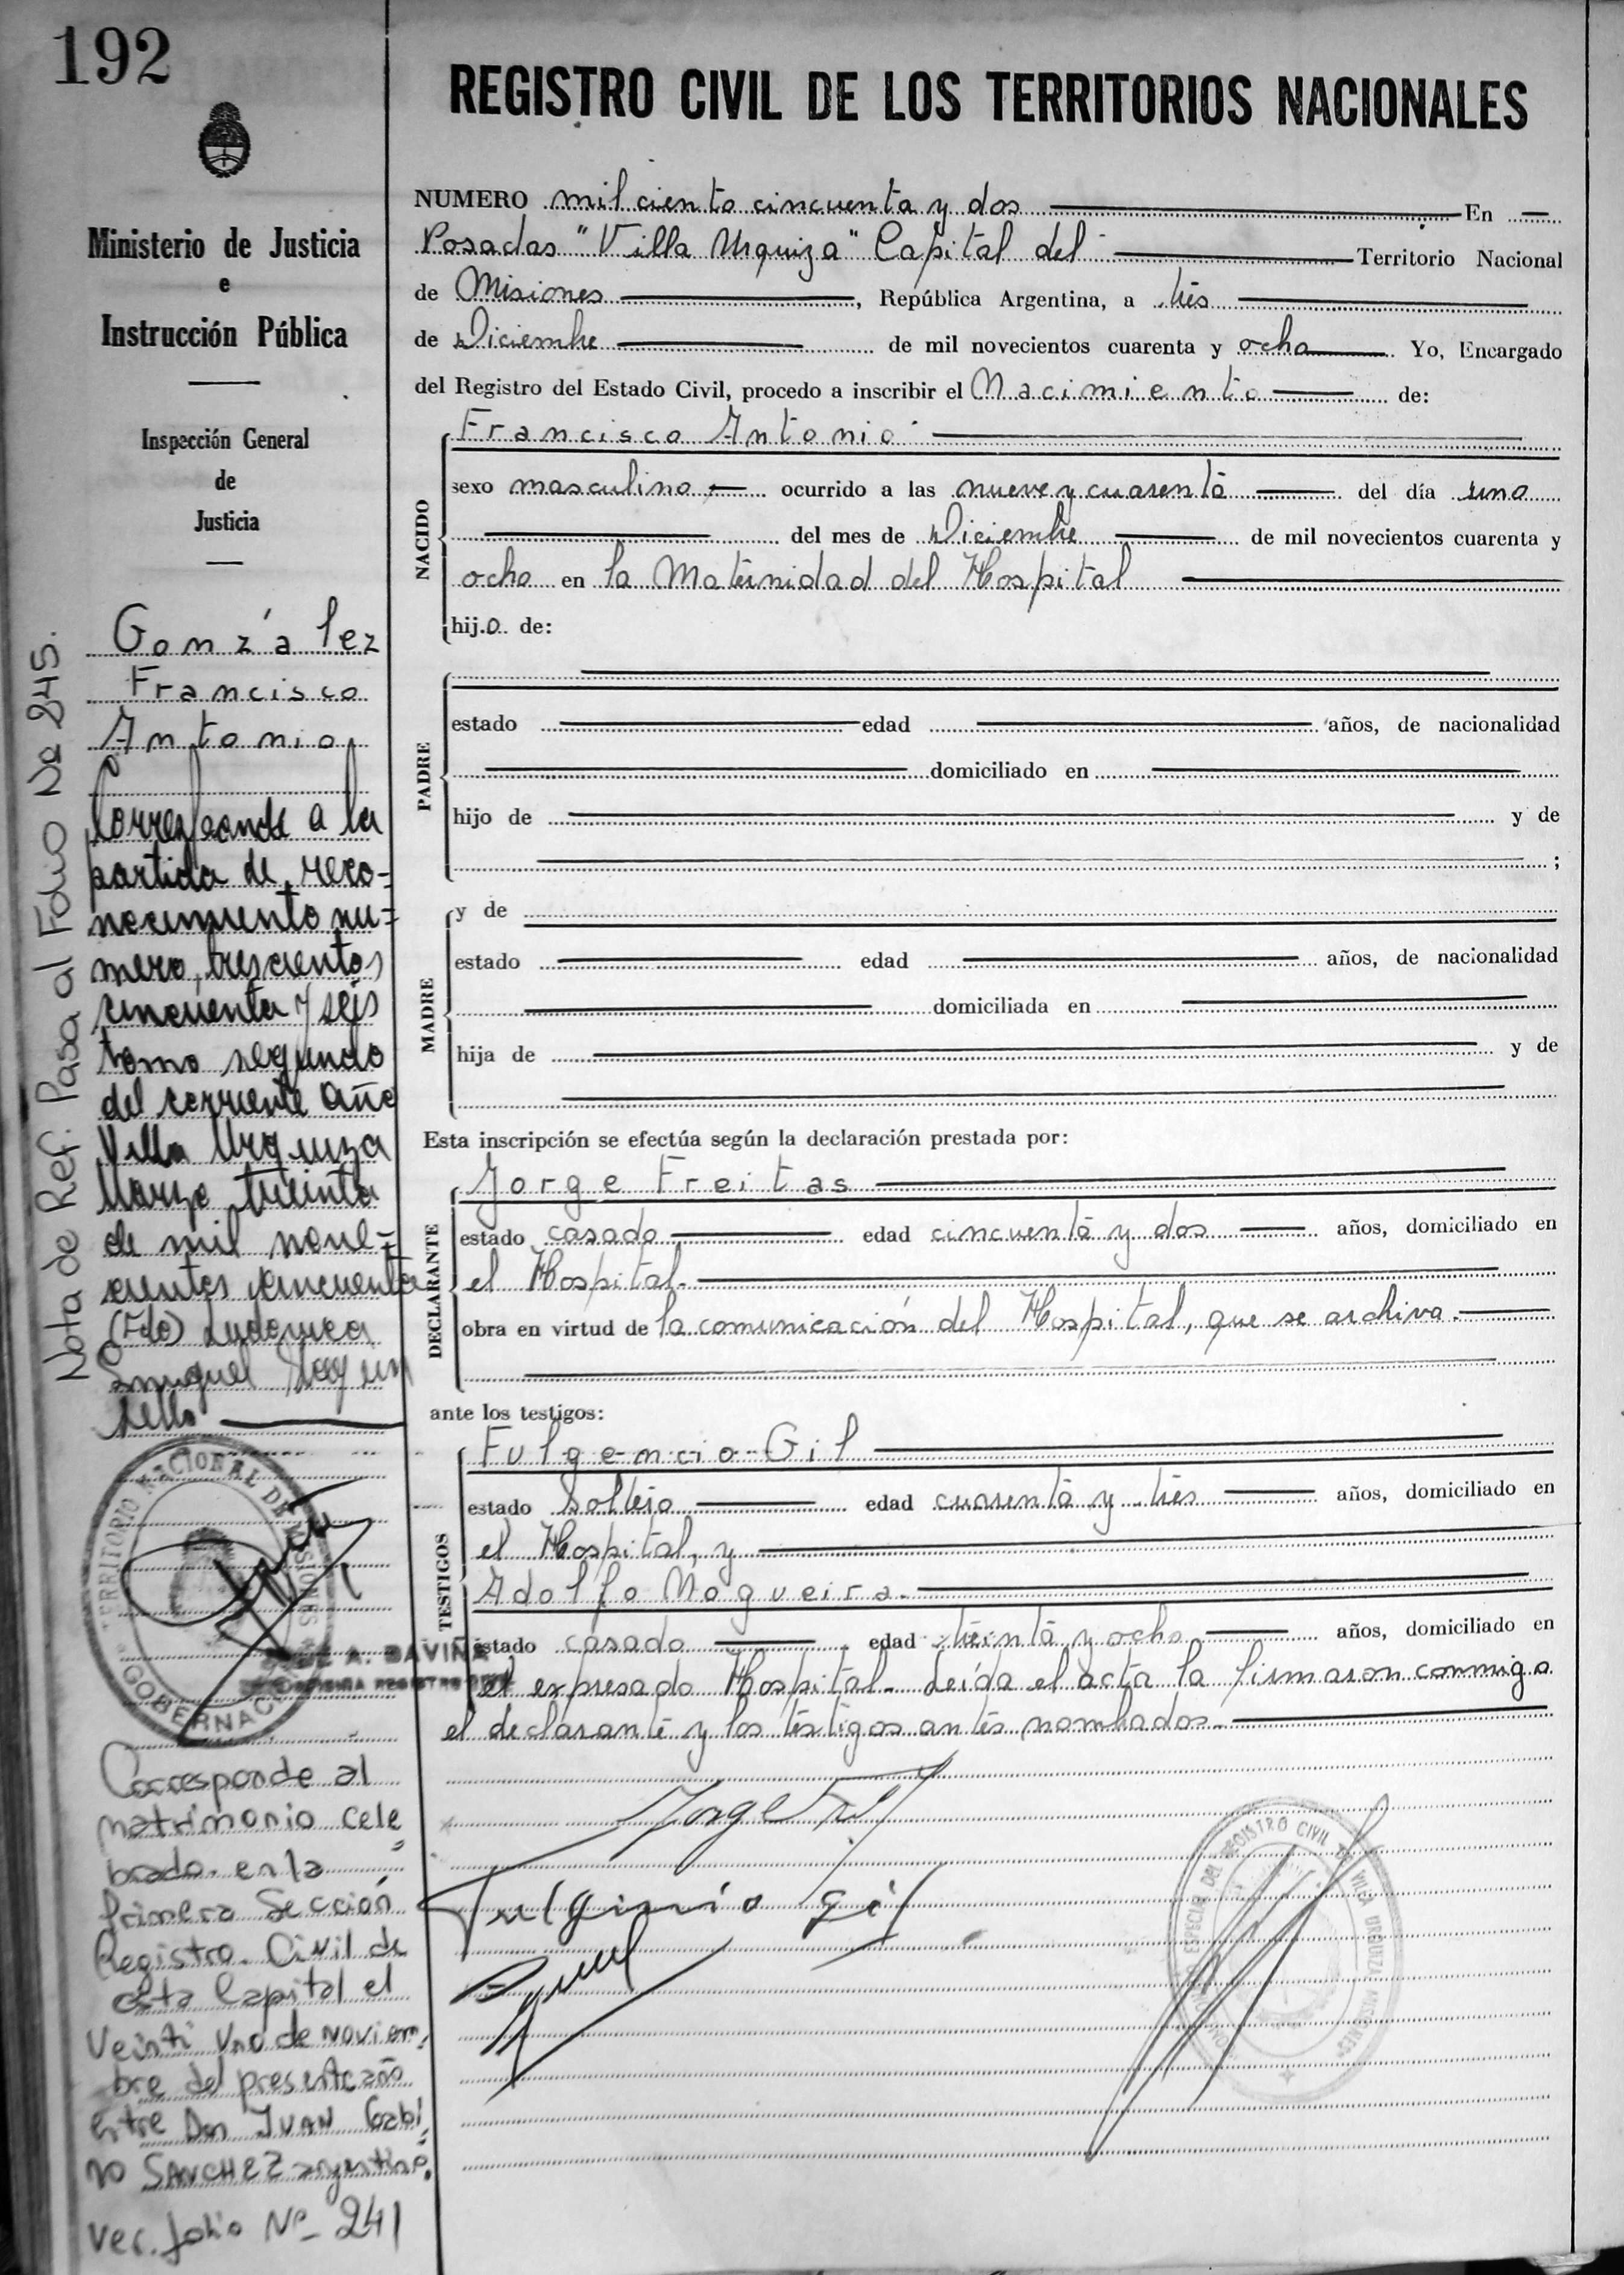 192
REGISTRO CIVIL DE LOS TERRITORIOS NACIONALES
Ministerio de Justicia
e
Instrucción Pública
Inspección General
de
Justicia
González
Francisco
Antonio
Corresponde a la
partida de reco-
nocimiento nu-
mero trescientos
cincuenta y seis
tomo segundo
del corriente año
Villa Urquiza
Marzo treinta
de mil nove-
cientos cincuenta
(Fdo) Ludovica
sello
TERRITORIO NACIONAL DE MISIONES
GOBERNACI
A. DAVIÑA
REGISTRO
Corresponde al
matrimonio cele
brado en la
primera Sección
Registro Civil de
esta Capital el
Veinti uno de noviem
bre del presente año
entre Don JUAN Gabi
no SANCHEZ argentino.
Ver folio Nº 241
Nota de Ref. Pasa al Folio Nº 245.
NUMERO mil ciento cincuenta y dos En
Posadas "Villa Urquiza" Capital del Territorio Nacional
de Misiones, República Argentina, a tres
de Diciembre de mil novecientos cuarenta y ocho Yo, Encargado
del Registro del Estado Civil, procedo a inscribir el Nacimiento de:
NACIDO
Francisco Antonio
sexo masculino ocurrido a las nueve y cuarenta del día uno
del mes de Diciembre de mil novecientos cuarenta y
ocho en la Maternidad del Hospital
hijo de:
PADRE
estado edad años, de nacionalidad
domiciliado en
hijo de y de
;
MADRE
y de
estado edad años, de nacionalidad
domiciliada en
hija de y de
Esta inscripción se efectúa según la declaración prestada por:
DECLARANTE
Jorge Freitas
estado casado edad cincuenta y dos años, domiciliado en
el Hospital.
obra en virtud de la comunicación del Hospital, que se archiva.
ante los testigos:
TESTIGOS
Fulgencio Gil
estado soltero edad cuarenta y tres años, domiciliado en
el Hospital, y
Adolfo Nogueira.
estado casado edad treinta y ocho años, domiciliado en
el expresado Hospital. Leída el acta la firmaron conmigo
el declarante y los testigos antes nombrados.
Fulgencio Gil
ESPECIAL DEL REGISTRO CIVIL DE VILLA URQUIZA MISIONES